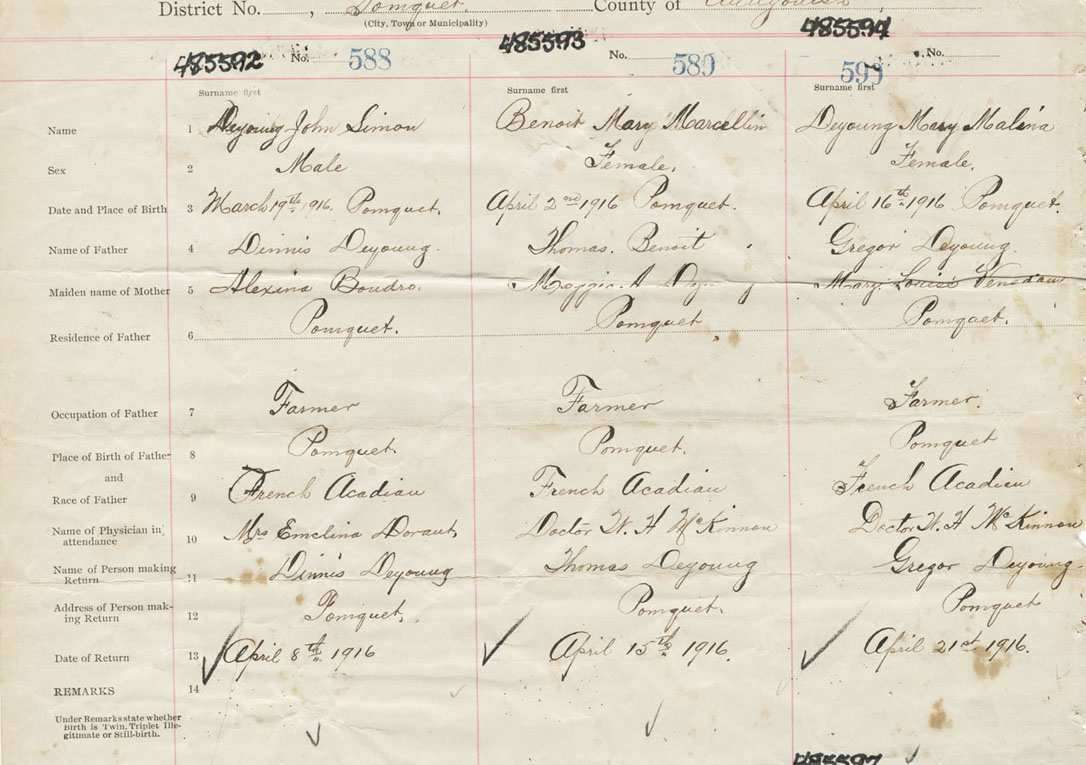 District No. , Pomquet County of
(City, Town or Municipality)
485592 No. 588 485593 No. 589 485594 No. 590
Surname first Surname first Surname first
Name 1 Deyoung John Simon Benoit Mary Marcellin Deyoung Mary Malina
Sex 2 Male Female, Female,
Date and Place of Birth 3 March 19th, 1916. Pomquet, April 2nd 1916 Pomquet. April 16th, 1916 Pomquet.
Name of Father 4 Dinnis Deyoung. Thomas. Benoit Gregor Deyoung.
Maiden name of Mother 5 Alexina Boudro. Maggie A Mary Louise
Residence of Father 6 Pomquet. Pomquet Pomquet.
Occupation of Father 7 Farmer Farmer Farmer.
Place of Birth of Father 8 Pomquet Pomquet. Pomquet
and
Race of Father 9 French Acadian French Acadian French Acadian
Name of Physician in attendance 10 Mrs Emelina Dorant Doctor W. H McKinnon Doctor W. H McKinnon
Name of Person making Return 11 Dinnis Deyoung Thomas Deyoung Gregor Deyoung
Address of Person mak-
ing Return 12 Pomquet, Pomquet. Pomquet
Date of Return 13 April 8th, 1916 April 15th 1916. April 21st 1916.
REMARKS 14
Under Remarks state whether
Birth is Twin, Triplet Ille-
gitimate or Still-birth.
485597